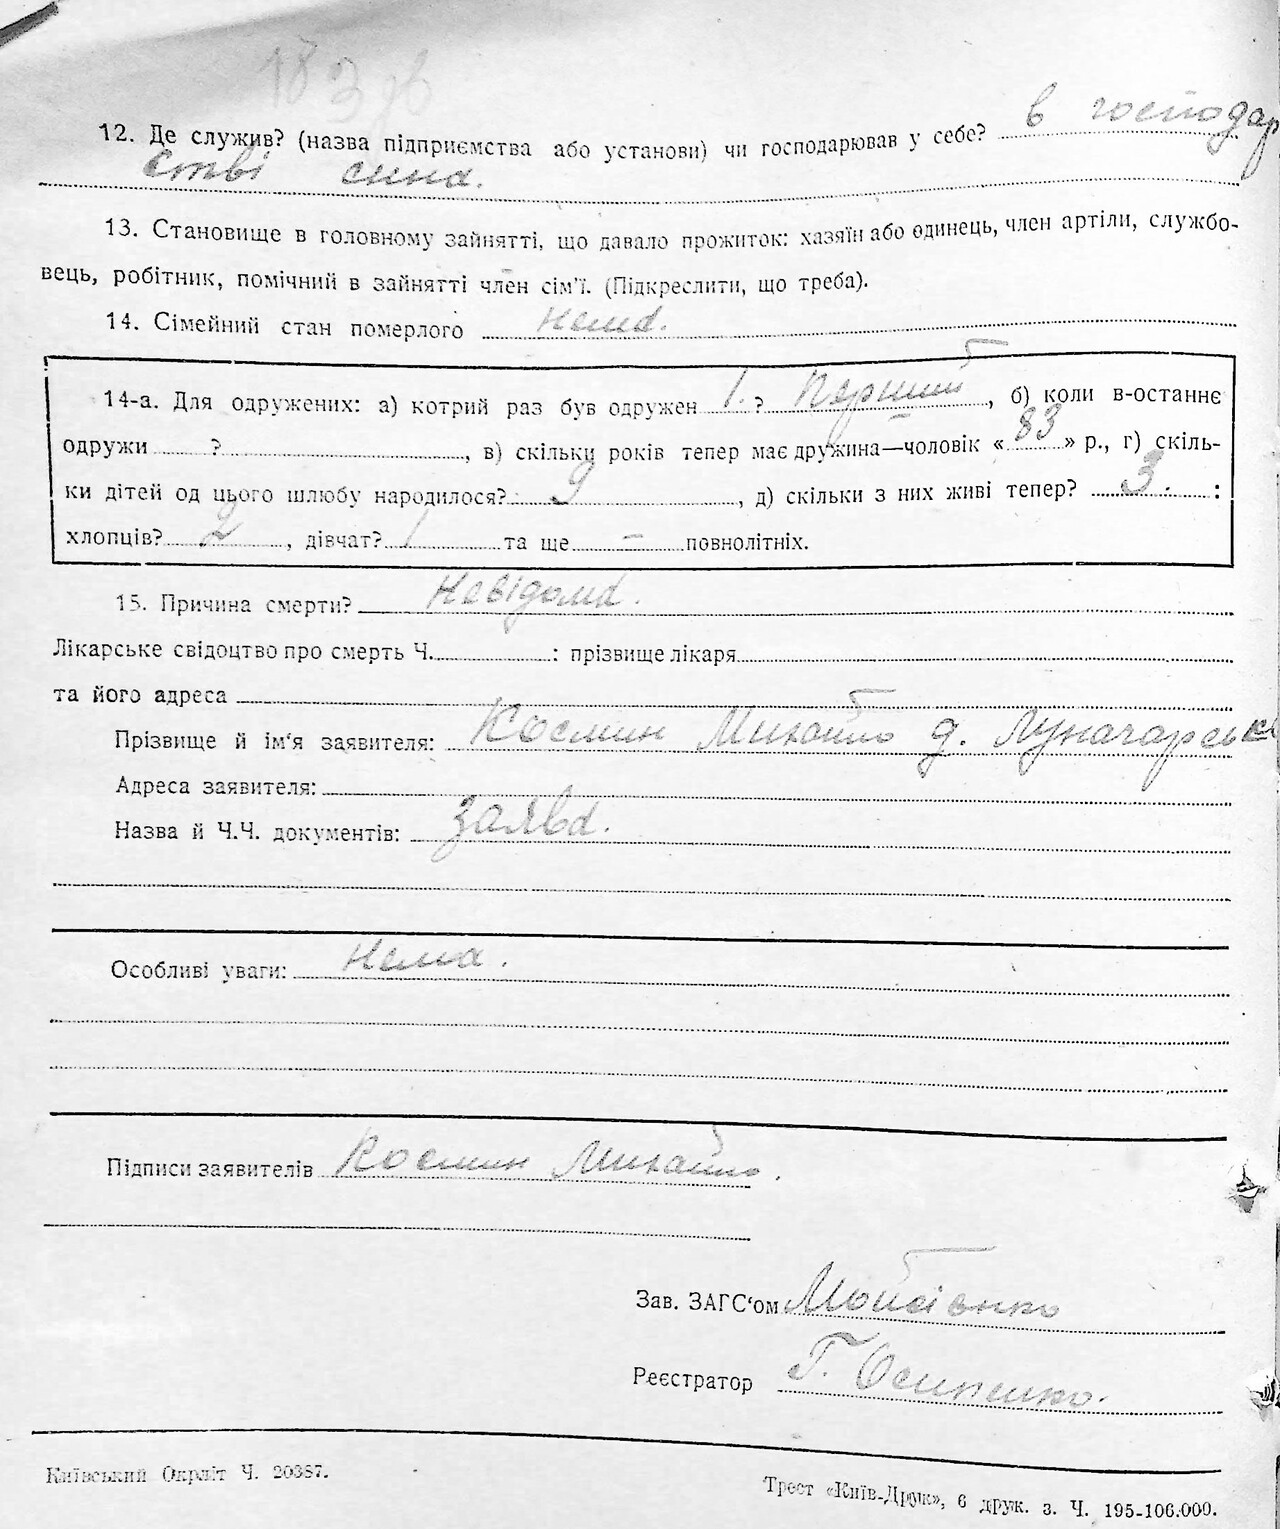 183 зв
12. Де служив? (назва підприємства або установи) чи господарював у себе? в господар
стві сина.
13. Становище в головному зайнятті, що давало прожиток: хазяїн або одинець, член артіли, службо-
вець, робітник, помічний в зайнятті член сім'ї. (Підкреслити, що треба).
14. Сімейний стан померлого нема.
14-а. Для одружених: а) котрий раз був одружен 1. ? Перший, б) коли в-останнє
одружи ?, в) скільки років тепер має дружина—чоловік «83» р., г) скіль-
ки дітей од цього шлюбу народилося? 9, д) скільки з них живі тепер? 3. :
хлопців? 2, дівчат? 1 та ще – повнолітніх.
15. Причина смерти? Невідома.
Лікарське свідоцтво про смерть Ч. : прізвище лікаря
та його адреса
Прізвище й ім'я заявителя: Космин Михайло д. Луначарськ
Адреса заявителя:
Назва й Ч.Ч. документів: заява.
Особливі уваги: Нема.
Підписи заявителів Космин Михайло.
Зав. ЗАГС'ом Мойсієнко
Реєстратор Г. Осипенко.
Київський Окрліт Ч. 20387.
Трест «Київ-Друк», 6 друк. з. Ч. 195-106.000.